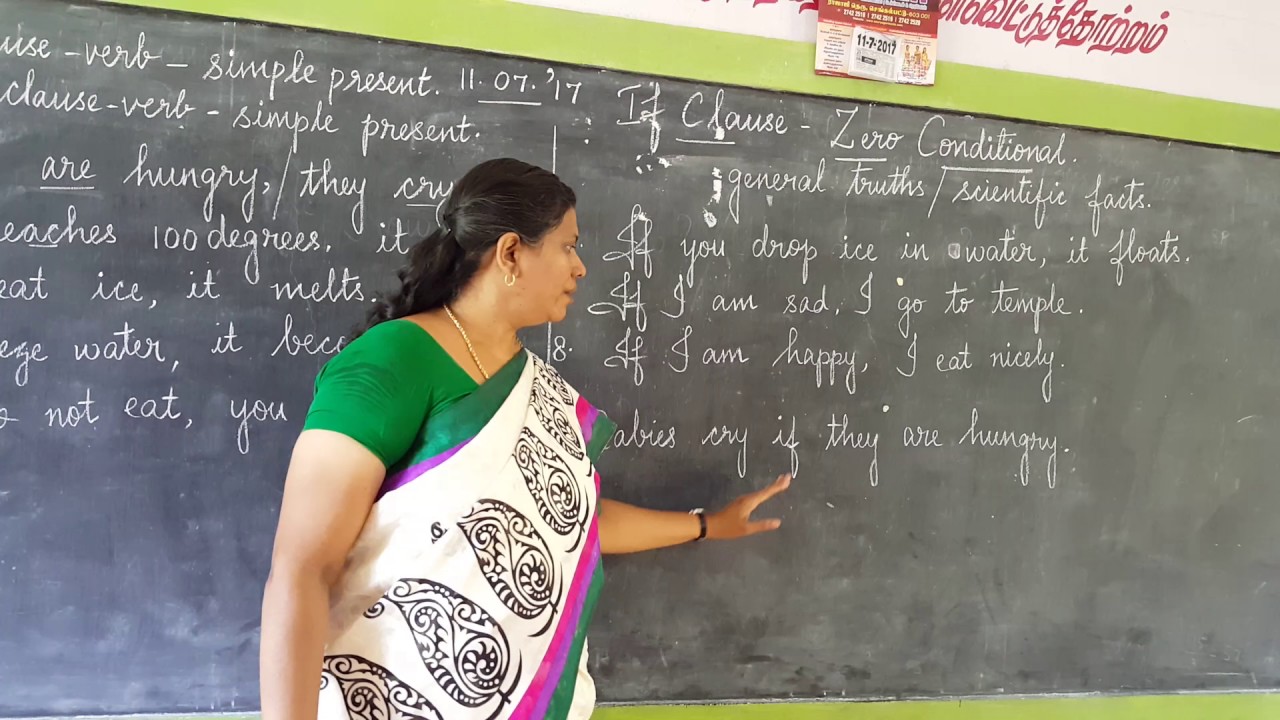 வெட்டுத்தோற்றம்
ராஜாஜி தெரு, செங்கல்பட்டு-603 001
11-7-2017
use - verb - simple present.
clause - verb - simple present.
are hungry, / they cry
reaches 100 degrees, it
eat ice, it melts.
eze water, it bec
not eat, you
11.07.'17
If Clause - Zero Conditional.
general truths / scientific facts.
If you drop ice in water, it floats.
If I am sad, I go to temple.
8. If I am happy, I eat nicely.
abies cry if they are hungry.